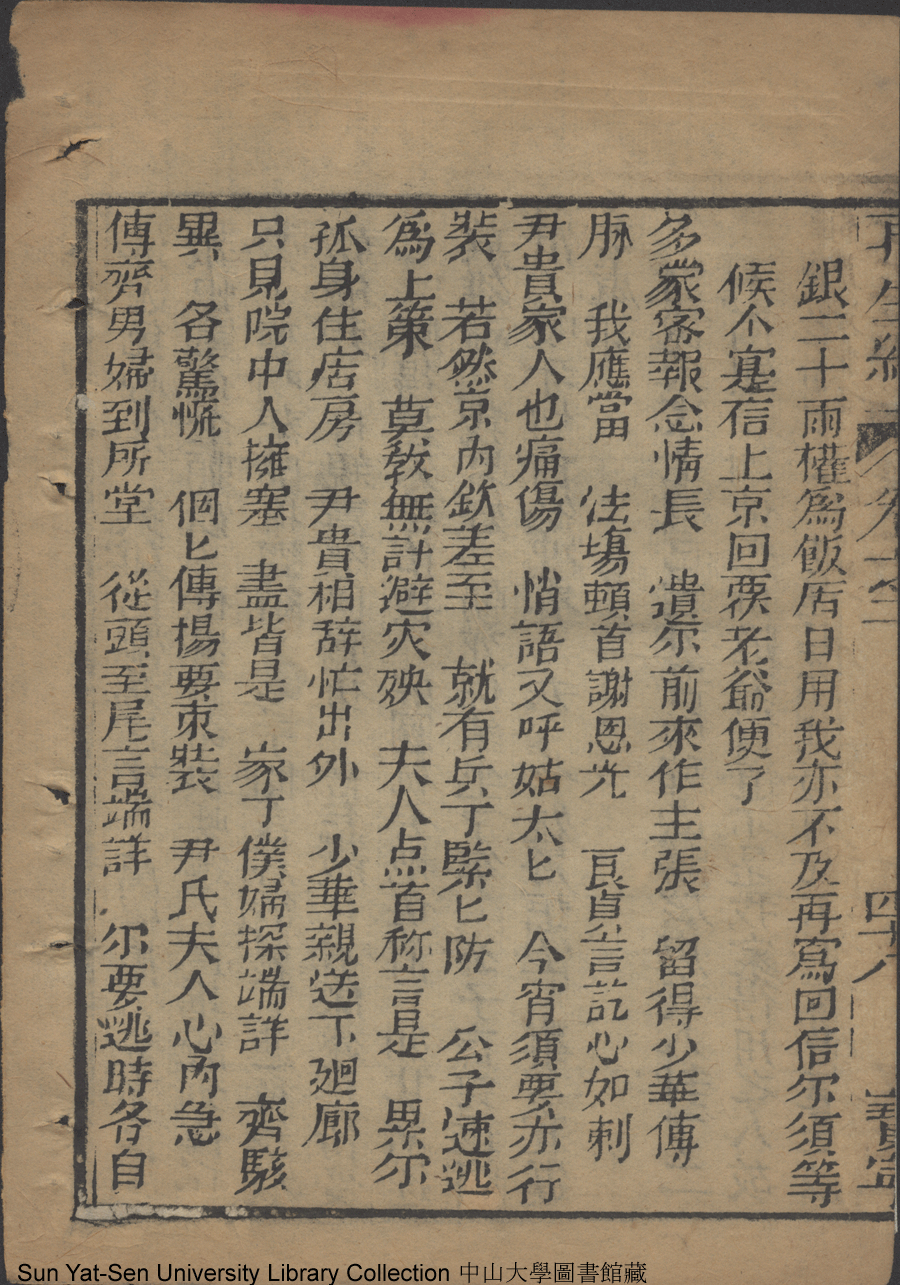 再生緣 卷之二 四十八 寶寧
銀二十兩權爲飯店日用我亦不及再寫回信尔須等
候个寔信上京回覆老爺便了
多蒙密報念情長 遺尔前來作主張 留得少華傳
脉 我應當 法塲頓首謝恩光 良貞公言訖心如刺
尹貴家人也痛傷 悄語又呼姑太匕 今宵須要亦行
裝 若然京内欽差至 就有兵丁緊匕防 公子速逃
爲上策 莫教無計避灾殃 夫人点首称言是 累尔
孤身住店房 尹貴相辞忙出外 少華親送下廻廊
只見院中人擁塞 盡皆是 家丁僕婦探端詳 齊駭
異 各驚慌 個匕傳揚要束裝 尹氏夫人心內急
傳齊男婦到所堂 從頭至尾言端詳 尔要逃時各自
Sun Yat-Sen University Library Collection 中山大學圖書館藏